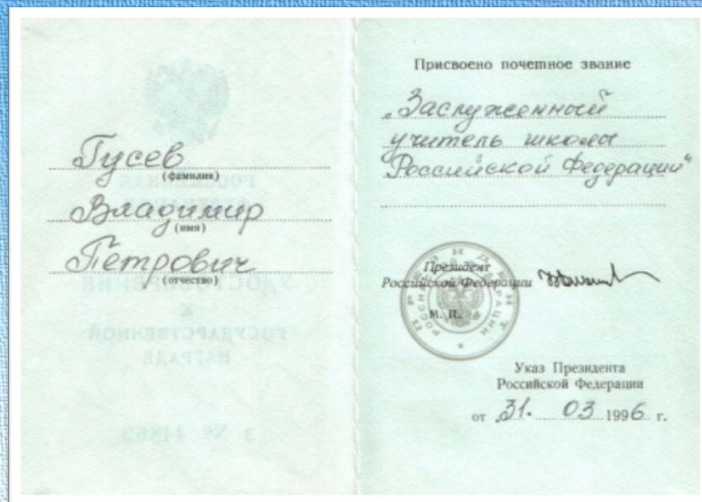 Гусев
(фамилия)
Владимир
(имя)
Петрович
(отчество)
Присвоено почетное звание
„Заслуженный
учитель школы
Российской Федерации"
Президент
Российской Федерации
М. П.
Указ Президента
Российской Федерации
от 31. 03 1996 г.